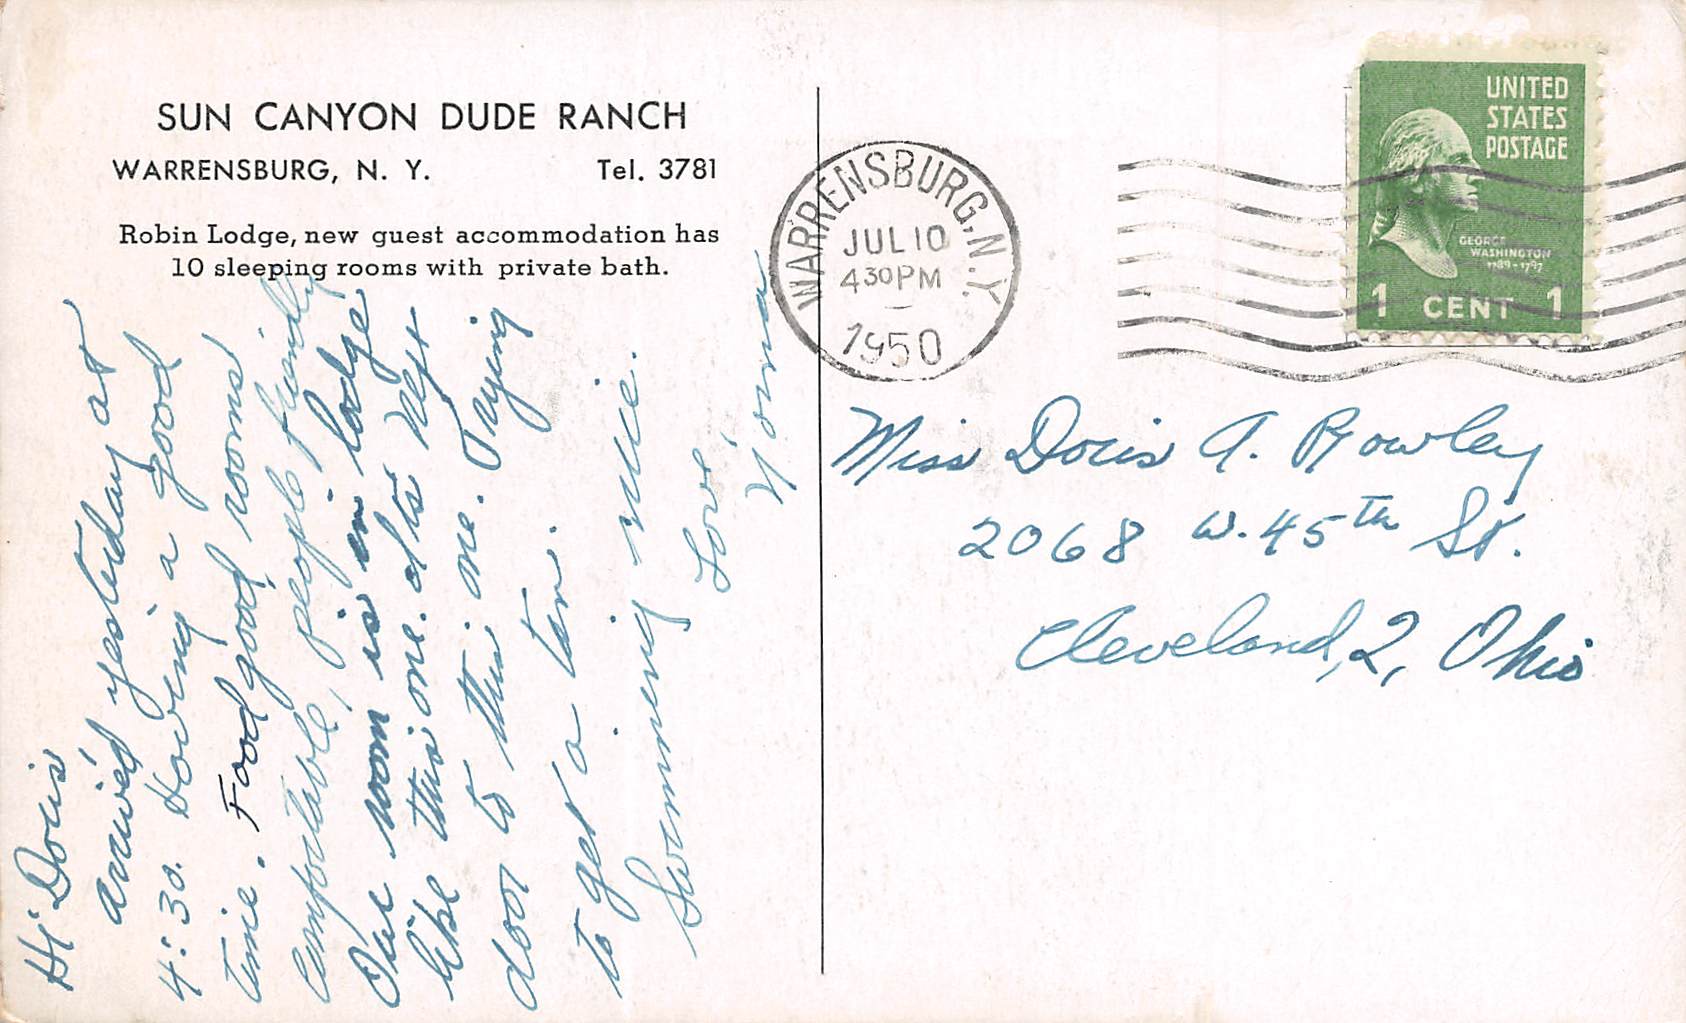 SUN CANYON DUDE RANCH
WARRENSBURG, N. Y. Tel. 3781
Robin Lodge, new guest accommodation has
10 sleeping rooms with private bath.
Hi Doris
arrived yesterday at
4:30. Having a good
time. Food good, rooms
comfortable, people friendly.
Our room is in lodge
like this one. Its next
door to this one. Trying
to get a tan.
Swimming nice.
Love
Norma
WARRENSBURG, N.Y.
JUL 10
430PM
1950
UNITED
STATES
POSTAGE
GEORGE
WASHINGTON
1789-1797
1 CENT 1
Miss Doris A. Rowley
2068 W. 45th St.
Cleveland, 2, Ohio